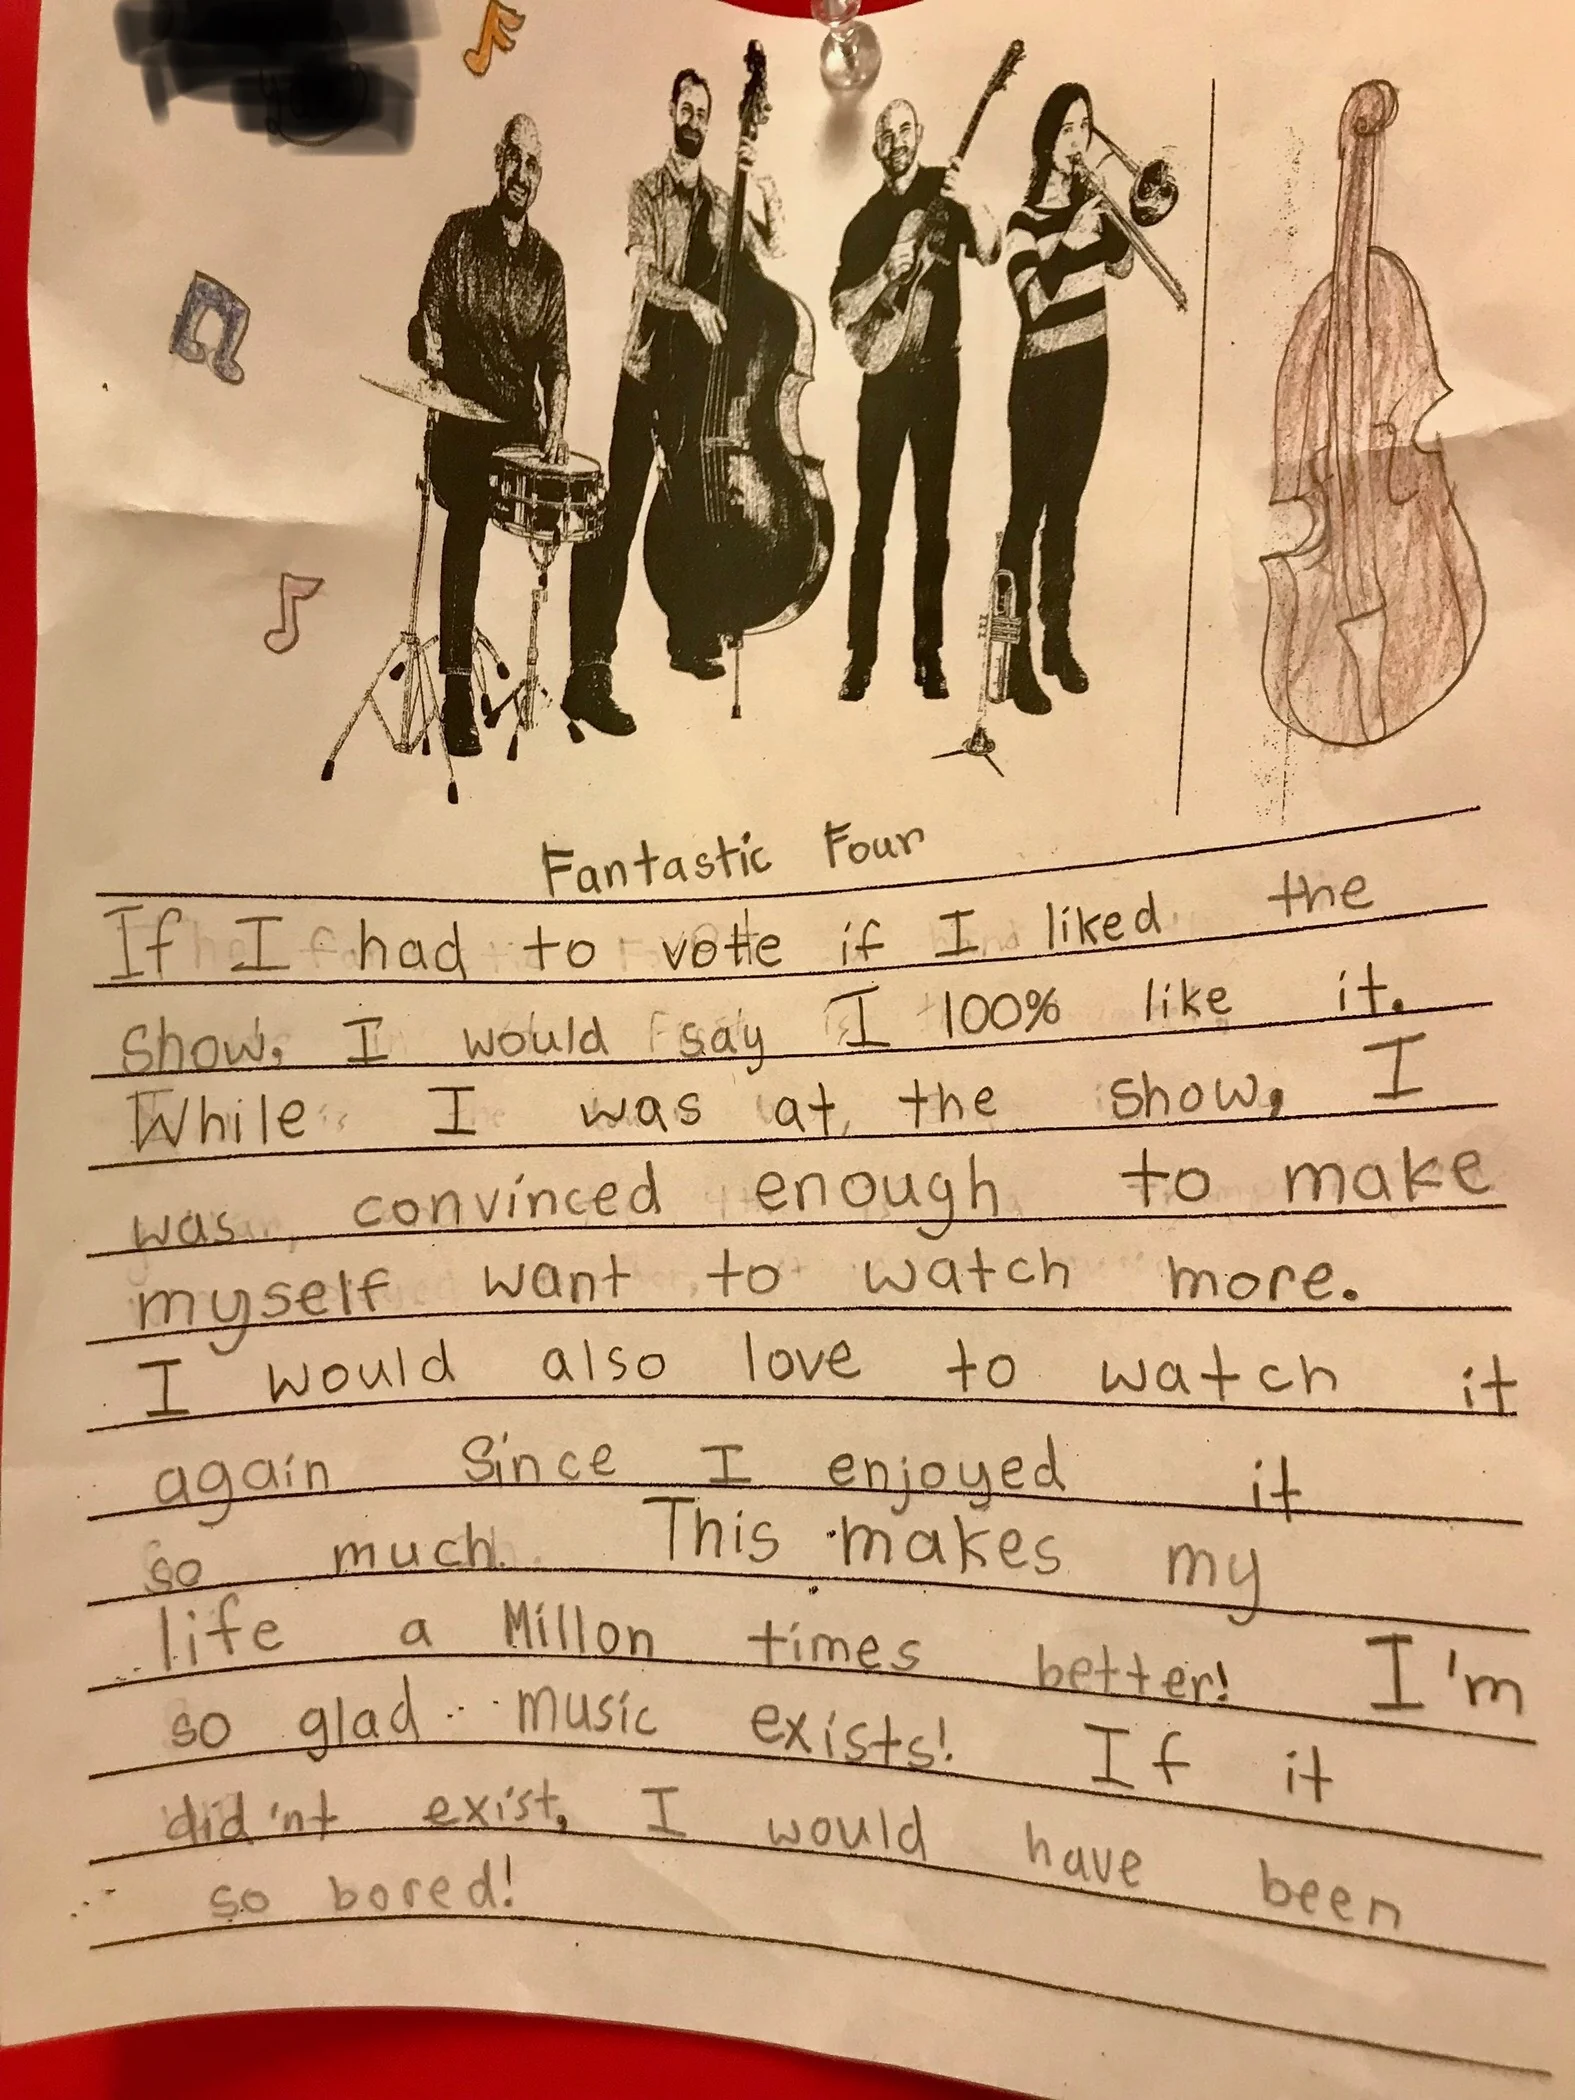 Fantastic Four
If I had to vote if I liked the
show, I would say I 100% like it.
While I was at the show, I
was convinced enough to make
myself want to watch more.
I would also love to watch it
again since I enjoyed it
so much. This makes my
life a Millon times better! I'm
so glad music exists! If it
did'nt exist, I would have been
so bored!